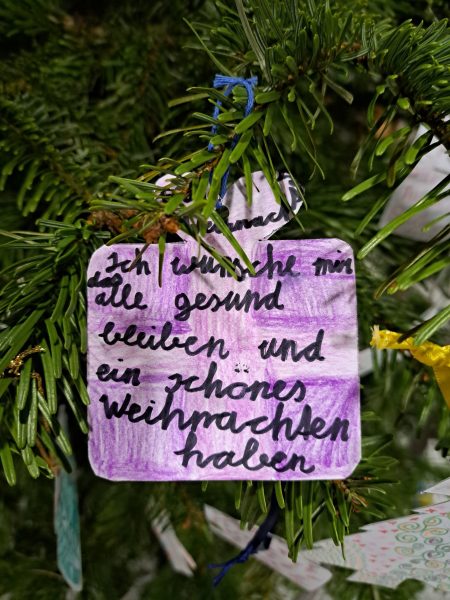 Ich wünsche mir
das
alle gesund
bleiben und
ein schönes
Weihnachten
haben